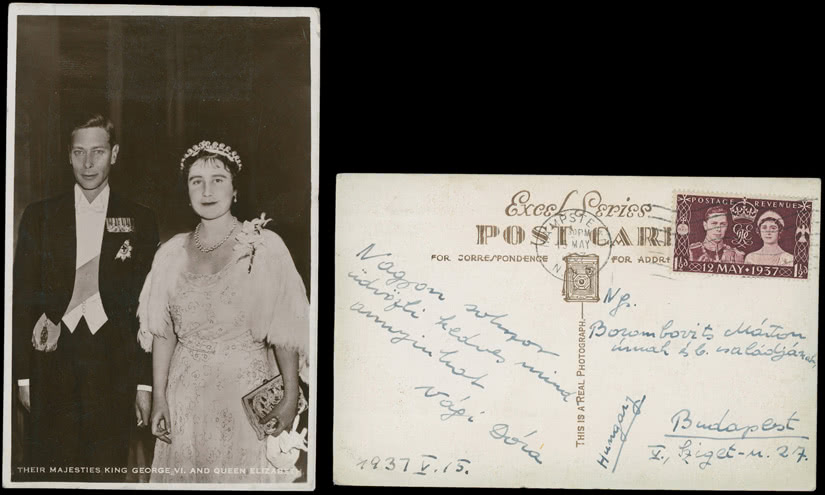 THEIR MAJESTIES KING GEORGE VI. AND QUEEN ELIZABETH
Excel Series
POSTCARD
FOR CORRESPONDENCE
FOR ADDR
HAMPSTE
PM
MAY
N.W.
POSTAGE REVENUE
1½D 12 MAY • 1937 1½D
THIS IS A REAL PHOTOGRAPH.
Nagyon sokszor
üdvözli kedves mind
annyiukat
Vági Dóra
1937 V. 15.
Ng.
Borombovits Márton
úrnak és b. családjának
Budapest
V., Sziget-u. 27.
Hungary